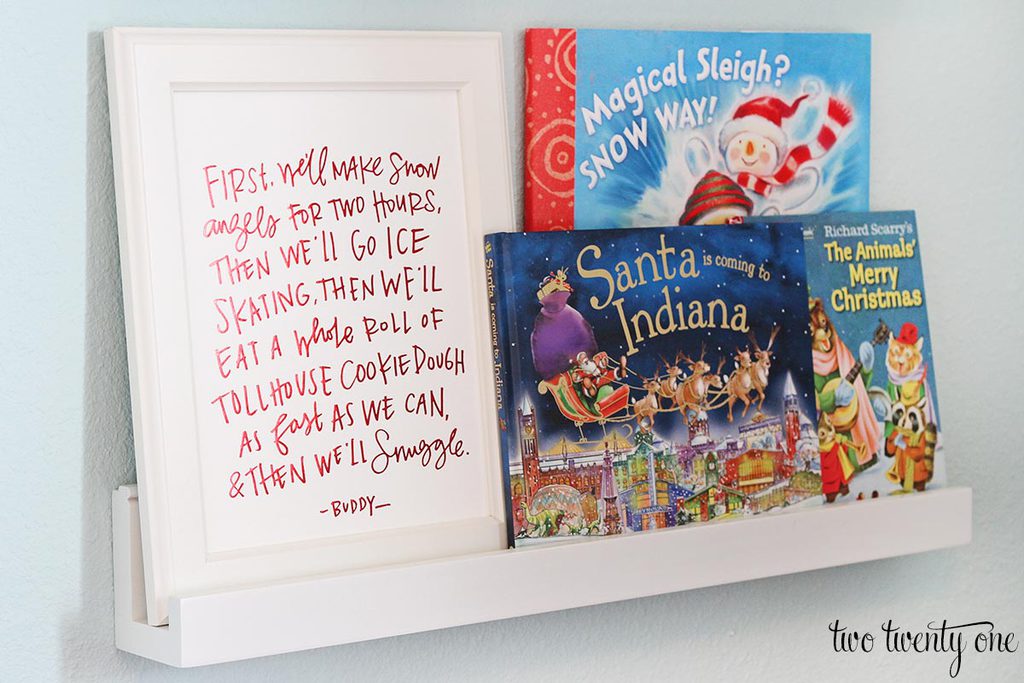 FIRST, We'll MAKE Snow
angels FOR TWO HOURS,
THEN WE'LL GO ICE
SKATING, THEN WE'LL
EAT A whole ROLL OF
TOLLHOUSE COOKIE DOUGH
AS fast AS WE CAN,
& THEN WE'LL Snuggle.
-BUDDY-
Magical Sleigh?
SNOW WAY!
Santa is coming to Indiana
Santa is coming to
Indiana
Richard Scarry's
The Animals'
Merry
Christmas
two twenty one